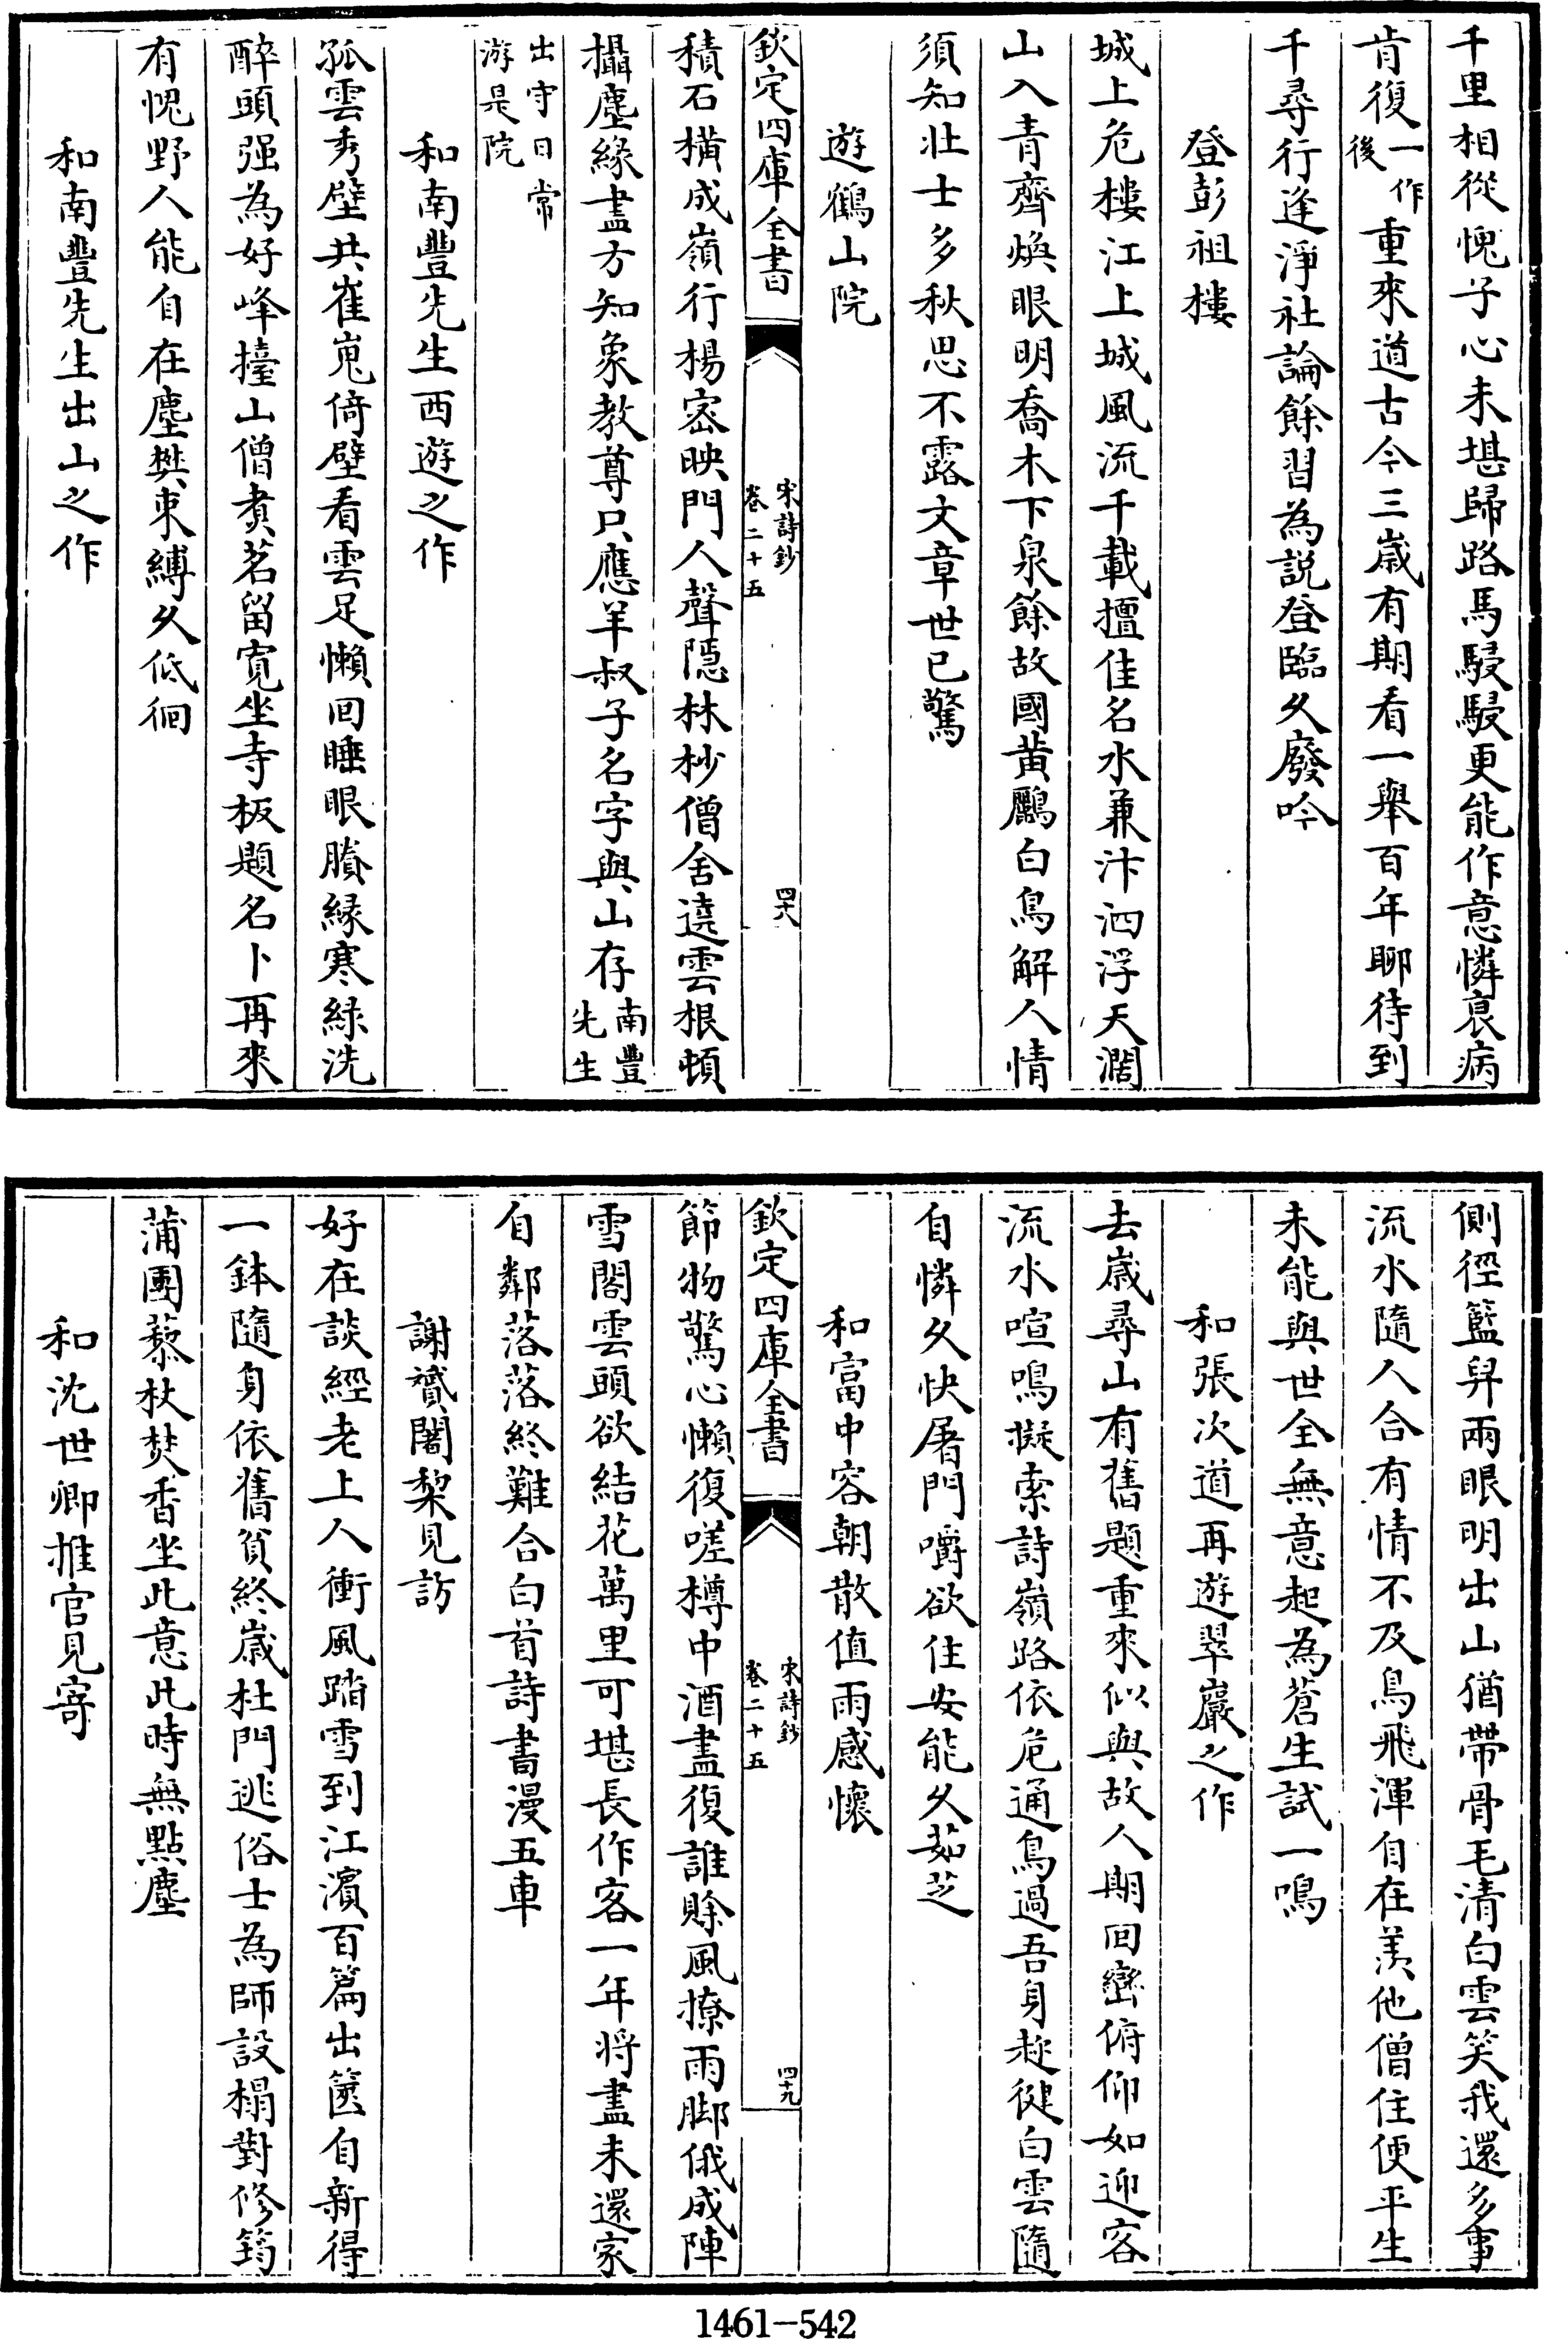 千里相從愧子心未堪歸路馬駸駸更能作意憐衰病
肯復一作後重來道古今三歲有期看一舉百年聊待到
千尋行逢淨社論餘習為説登臨久廢吟
登彭祖樓
城上危樓江上城風流千載擅佳名水兼汴泗浮天濶
山入青齊煥眼明喬木下泉餘故國黄鸝白鳥解人情
須知壯士多秋思不露文章世已驚
遊鶴山院
欽定四庫全書
宋詩鈔
卷二十五
四十八
積石橫成嶺行楊宻映門人聲隱林杪僧舍遶雲根頓
攝塵緣盡方知象教尊只應羊叔子名字與山存南豐先生
出守日常游是院
和南豐先生西遊之作
孤雲秀壁共崔嵬倚壁看雲足懶回睡眼賸緣寒緑洗
醉頭强為好峰擡山僧煑茗留寛坐寺板題名卜再來
有愧野人能自在塵樊束縛久低徊
和南豐先生出山之作
側徑籃舁兩眼明出山猶帶骨毛清白雲笑我還多事
流水隨人合有情不及鳥飛渾自在羨他僧住便平生
未能與世全無意起為蒼生試一鳴
和張次道再遊翠巖之作
去歲尋山有舊題重來似與故人期回巒俯仰如迎客
流水喧鳴擬索詩嶺路依危通鳥過吾身趂健白雲隨
自憐久快屠門嚼欲住安能久茹芝
和富中容朝散值雨感懷
欽定四庫全書
宋詩鈔
卷二十五
四十九
節物驚心懶復嗟樽中酒盡復誰賖風撩雨脚俄成陣
雪閣雲頭欲結花萬里可堪長作客一年将盡未還家
自鄰落落終難合白首詩書漫五車
謝贇闍黎見訪
好在談經老上人衝風踏雪到江濱百篇出篋自新得
一鉢隨身依舊貧終歲杜門逃俗士為師設榻對修筠
蒲團藜杖焚香坐此意此時無點塵
和沈世卿推官見寄
1461-542